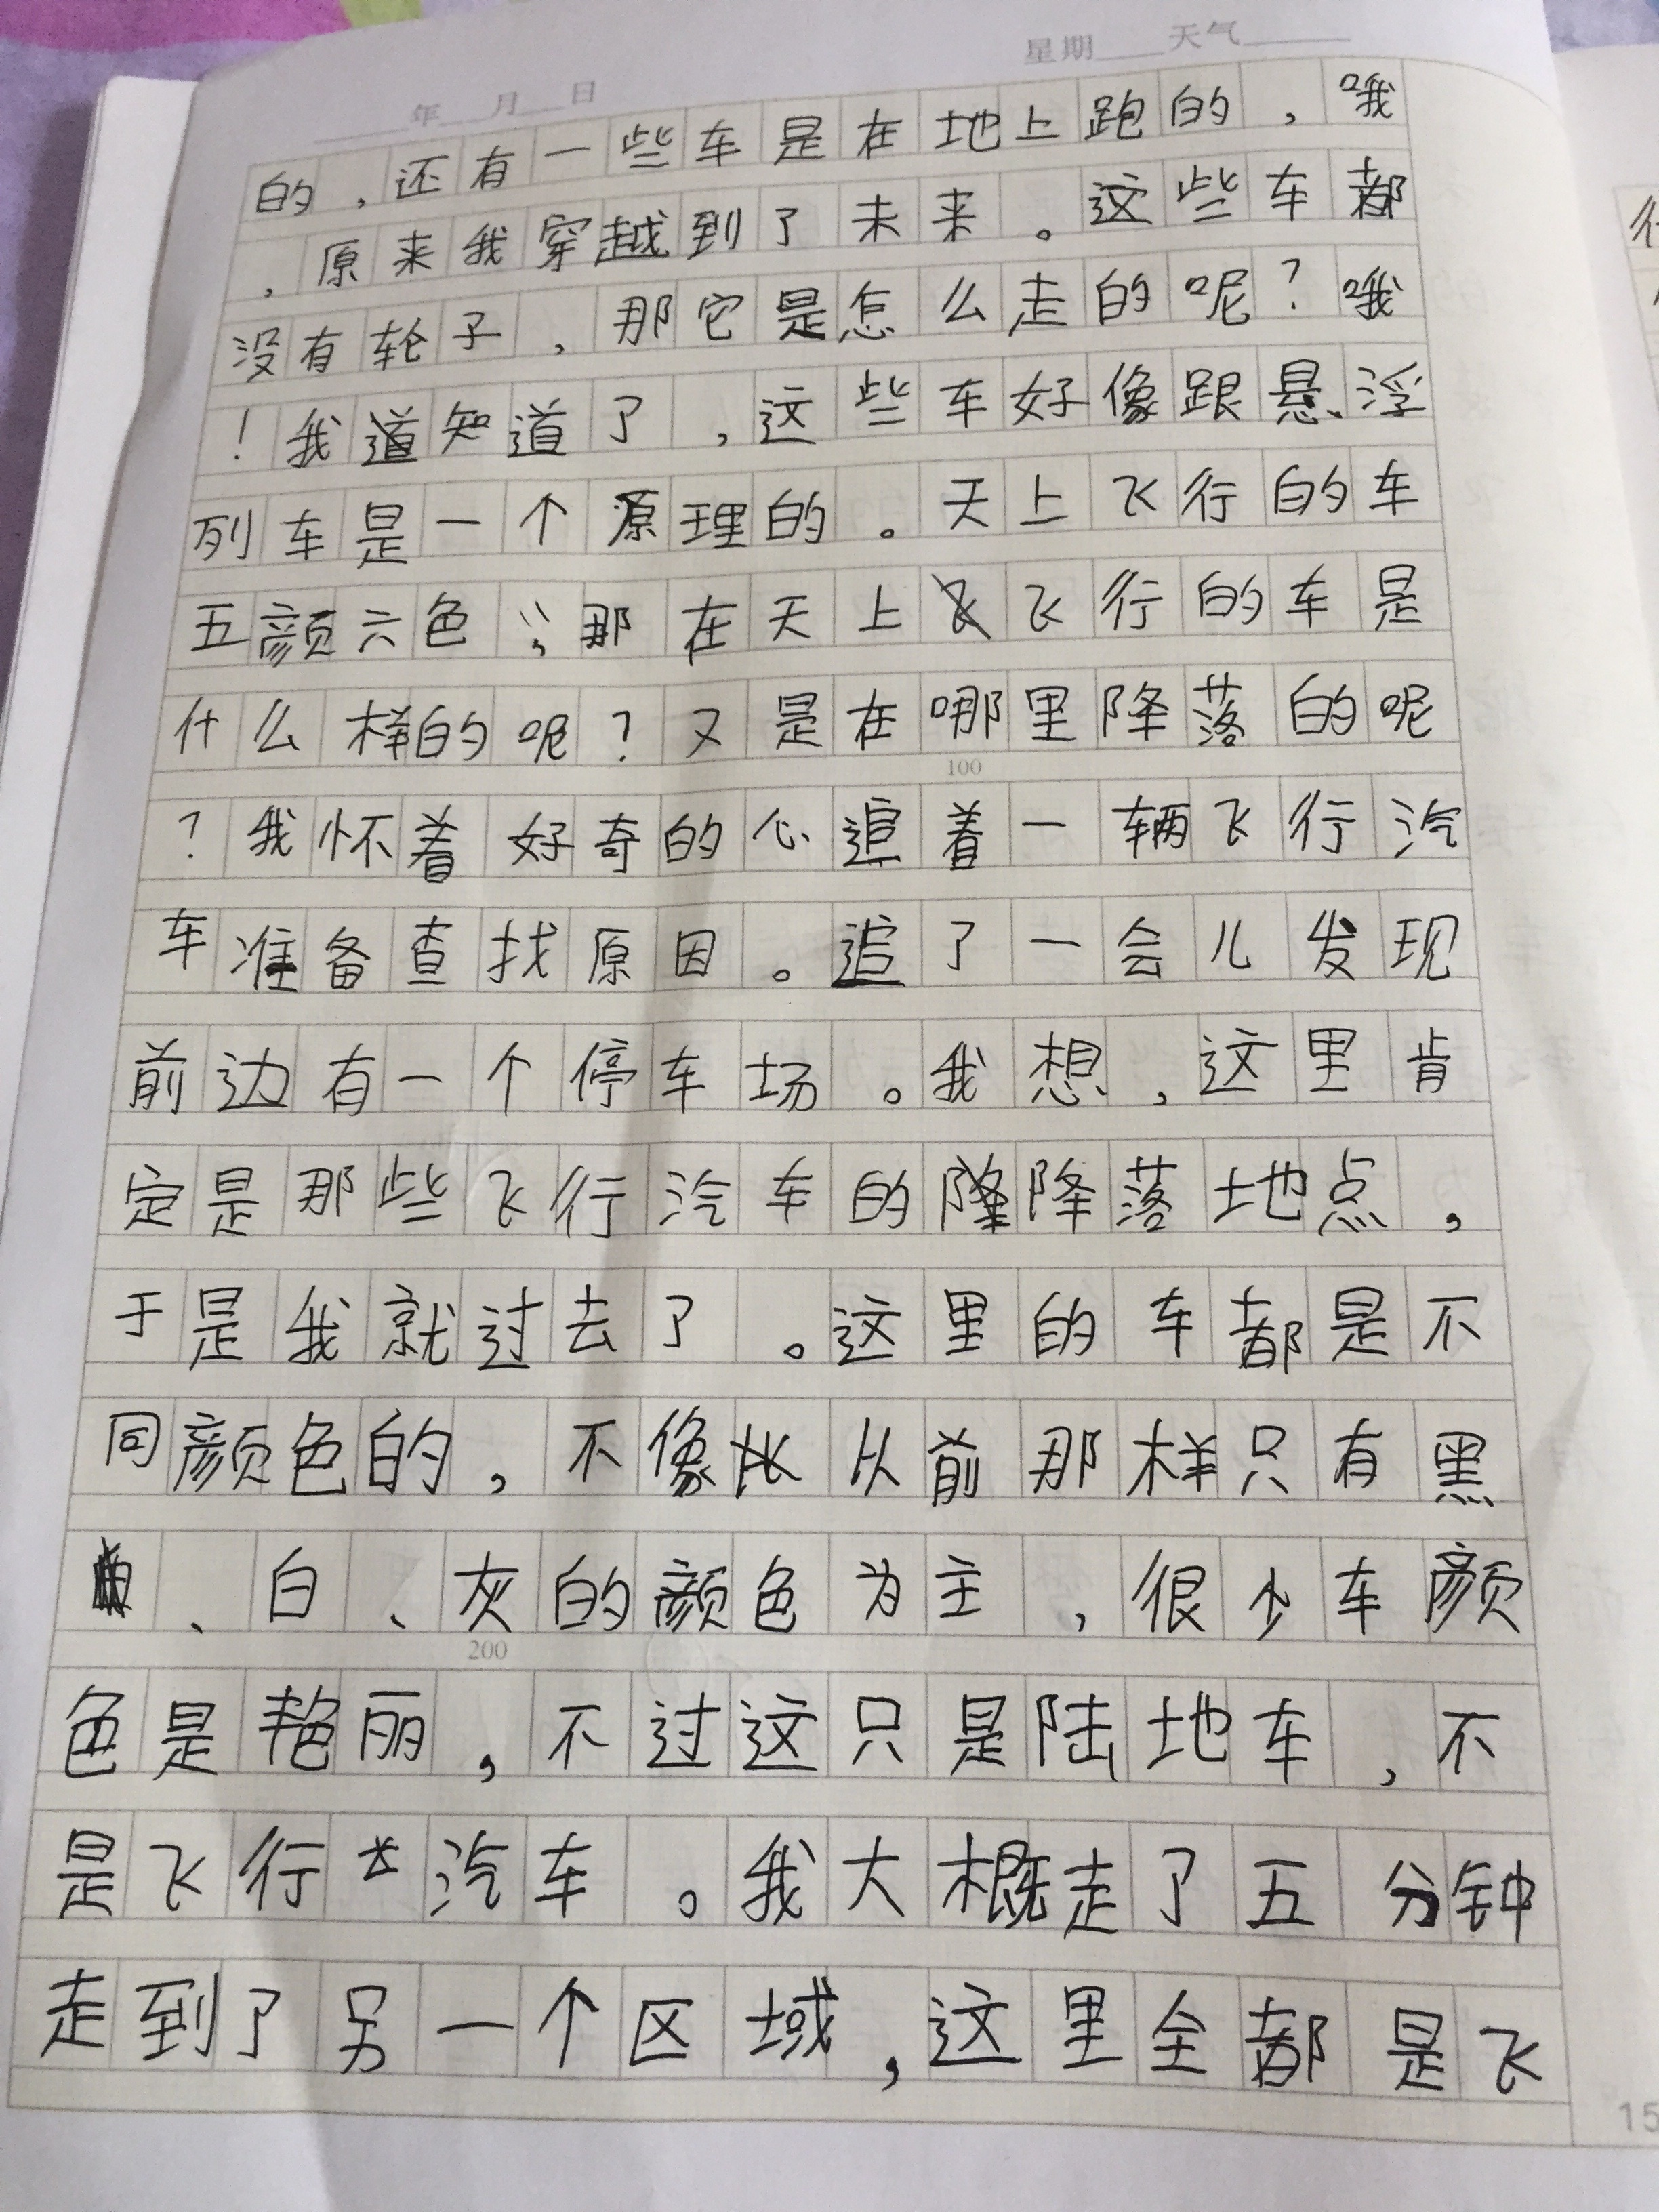 星期____天气____
____年__月__日
的，还有一些车是在地上跑的，哦
，原来我穿越到了未来。这些车都
没有轮子，那它是怎么走的呢？哦
！我道知道了，这些车好像跟悬浮
列车是一个原理的。天上飞行的车
五颜六色，那在天上飞行的车是
什么样的呢？又是在哪里降落的呢
100
？我怀着好奇的心追着一辆飞行汽
车准备查找原因。追了一会儿发现
前边有一个停车场。我想，这里肯
定是那些飞行汽车的降落地点，
于是我就过去了。这里的车都是不
同颜色的，不像从前那样只有黑
、白、灰的颜色为主，很少车颜
200
色是艳丽，不过这只是陆地车，不
是飞行汽车。我大概走了五分钟
走到了另一个区域，这里全都是飞
15